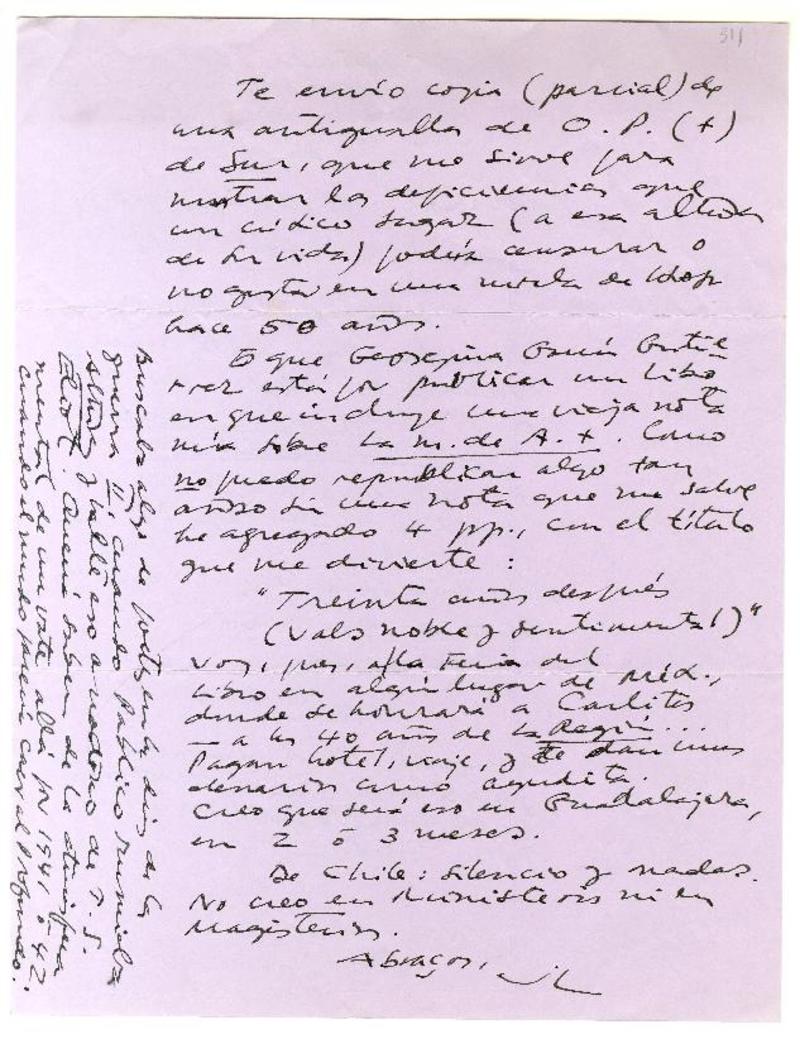 511
Te envío copia (parcial) de
una antigualla de O. P. (+)
de Sur, que me sirve para
mostrar las deficiencias que
un crítico sagaz (a esa altura
de su vida) podría censurar o
no gustar en una novela de
hace 50 años.
Es que Georgina García Gutié-
rrez está por publicar un libro
en que incluye una vieja nota
mía sobre La m. de A. +. Como
no puedo republicar algo tan
añoso sin una nota que me salve
he agregado 4 pp., con el título
que me divierte:
"Treinta años después
(Vals noble y sentimental)"
Voy, pues, a la Feria del
Libro en algún lugar de Méx.,
donde se honrará a Carlitos
— a los 40 años de La Región...
Pagan hotel, viaje, y te dan unos
denarios como ayudita.
Creo que será eso en Guadalajara,
en 2 ó 3 meses.
De Chile: silencio y nadas.
No creo en Ministerios ni en
Magisterios.
Abraços,
Buscaba algo de poesía de la
guerra II, cuando Pablico rumiaba
Alturas y hallé eso a modo de T. S.
Eliot. Quería saber de la atmósfera
mental de un vate allá por 1941 ó 42.
cuando el mundo parecía caer al Profundo.